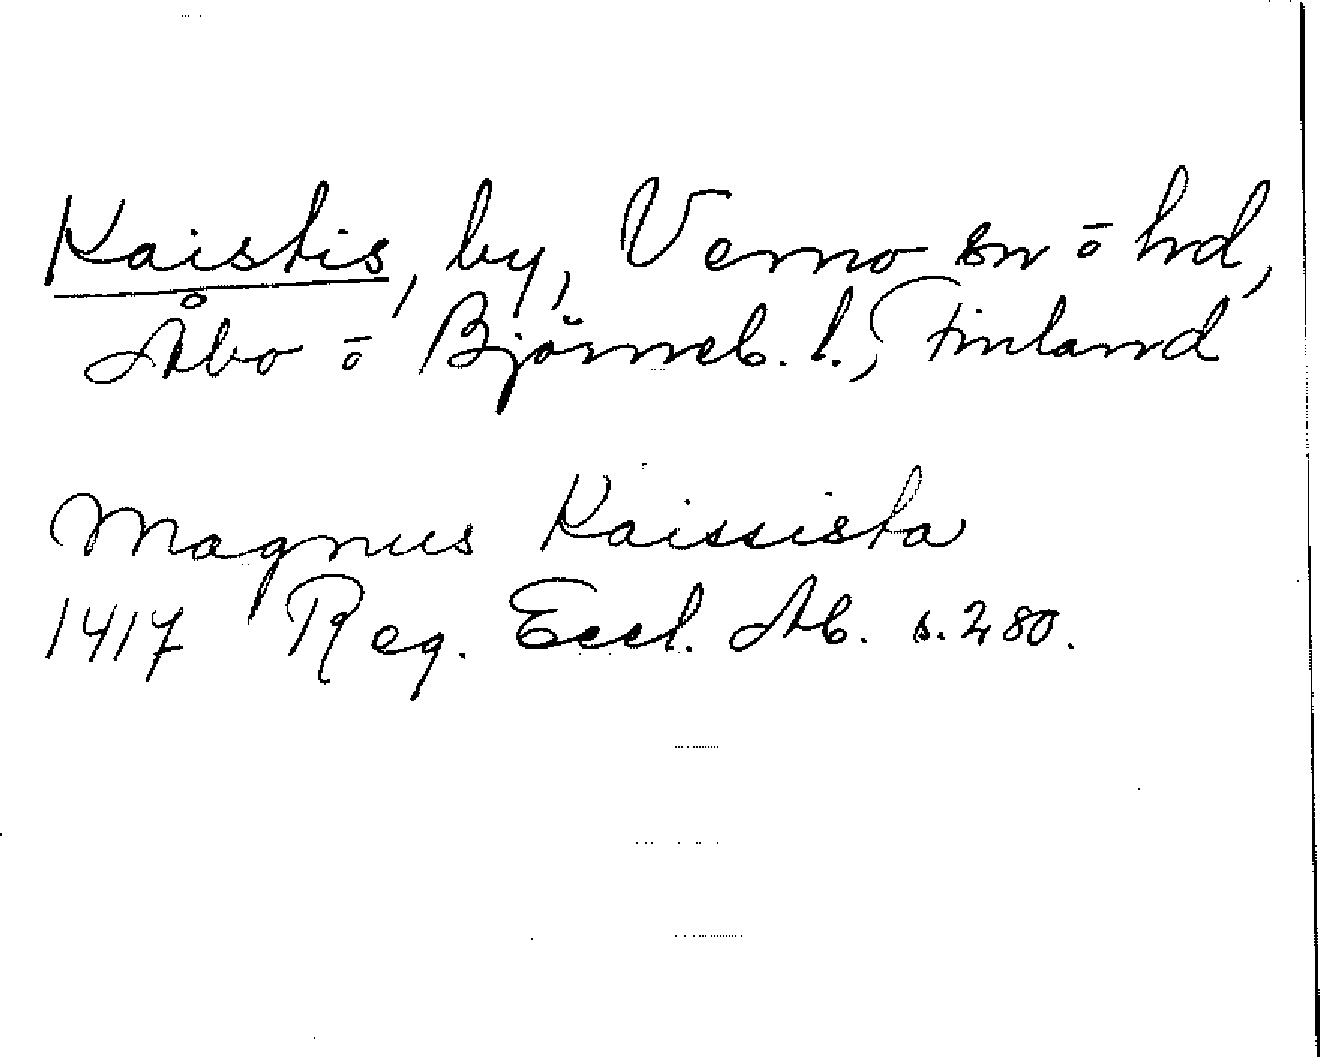 Kaistis, by, Vemo sn o hd,
Åbo o Björneb. l., Finland
Magnus Kaissista
1417 Reg. Eccl. Ab. s. 280.